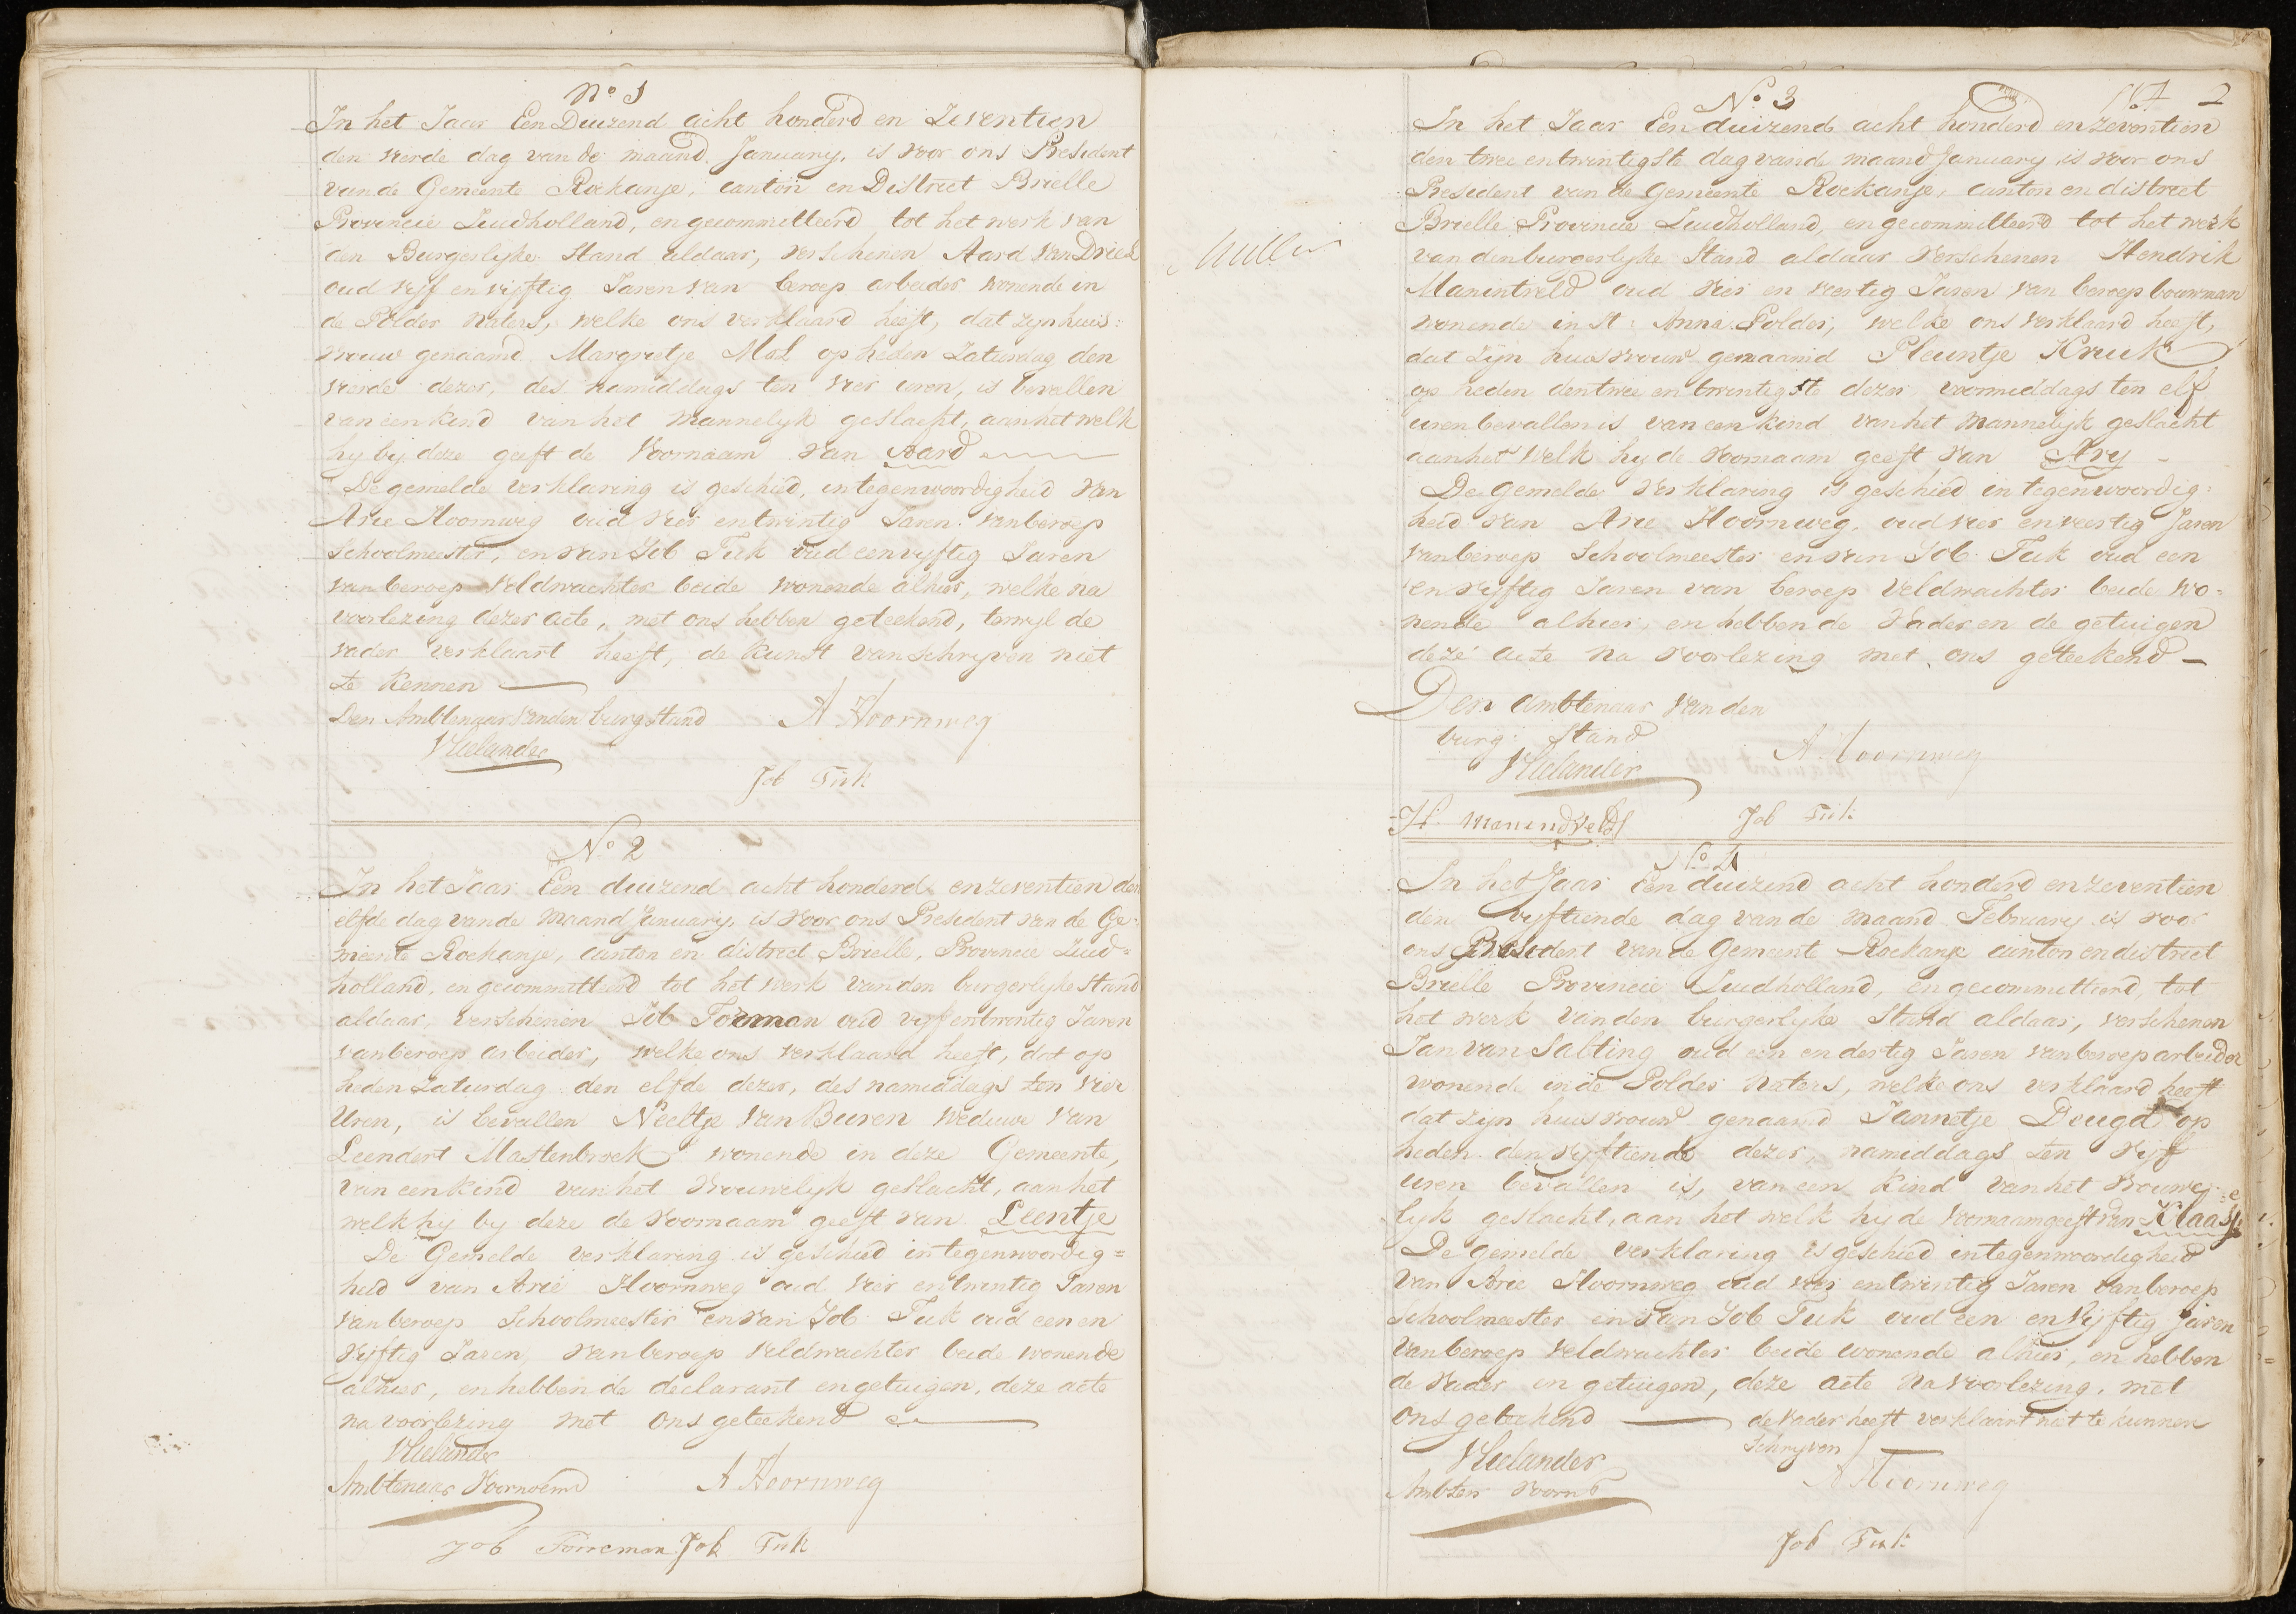 No 1
In het Jaar Een Duizend acht honderd en Zeventien
den vierde dag van de maand January, is voor ons President
van de Gemeente Rockanje, canton en District Brielle
Provincie Zuidholland, en gecommitteerd tot het werk van
den Burgerlyke Stand aldaar, verschenen Aard van Driel
oud vyf en vyftig Jaren van beroep arbeider wonende in
de Polder Naters, welke ons verklaard heeft, dat zyn huis:
vrouw genaamd Margretje Mol op heden Zaturdag den
vierde dezer, des namiddags ten vier uren, is bevallen
van een kind van het Mannelyk geslacht, aan het welk
hy by deze geeft de Voornaam van Aard
De gemelde verklaring is geschied, in tegenwoordigheid van
Arie Hoornweg oud vier en twintig Jaren van beroep
Schoolmeester, en van Job Tuk oud een vyftig Jaren
van beroep Veldwachter beide wonende alhier, welke na
voorlezing dezer acte, met ons hebben geteekend, terwyl de
vader verklaart heeft, de kunst van Schryven niet
te kennen —
Den Ambtenaar van den burg Stand A. Hoornweg
Vlielander
Job Tuk
No 2
In het Jaar Een duizend acht honderd en zeventien den
elfde dag van de Maand January, is voor ons President van de Ge-
meente Rockanje, canton en district Brielle, Provincie Zuid=
holland, en gecommitteerd tot het werk van den burgerlyke Stand
aldaar, verschenen Job Forman oud vyf en twintig Jaren
van beroep arbeider, welke ons verklaard heeft, dat op
heden Zaturdag den elfde dezer, des namiddags ten vier
Uren, is bevallen Neeltje van Buren weduwe van
Leendert Mastenbroek wonende in deze Gemeente,
van een kind van het Vrouwelyk geslacht, aan het
welk hy by deze de voornaam geeft van Leentje
De Gemelde verklaring is geschied in tegenwoordig=
heid van Arie Hoornweg oud vier en twintig Jaren
van beroep Schoolmeester en van Job Tuk oud een en
vyftig Jaren, van beroep Veldwachter beide wonende
alhier, en hebben de declarant en getuigen, deze acte
na voorlezing met ons geteekend
Vlielander
Ambtenaar Voornoemd A Hoornweg
Job Forreman Job Tuk
No 3 2
In het Jaar Een duizend acht honderd en zeventien
den twee en twintigste dag van de maand January, is voor ons
President van de Gemeente Rockanje, canton en district
Brielle Provincie Zuidholland, en gecommitteerd tot het werk
van den burgerlyke Stand aldaar verschenen Hendrik
Manintveld oud vier en veertig Jaren van beroep bouwman
wonende in St: Anna Polder, welke ons verklaard heeft,
dat zyn huisvrouw genaamd Pleuntje Kruik
op heden den twee en twintigste dezer voormiddags ten elf
uren bevallen is van een kind van het Mannelyk geslacht
aan het welk hy de voornaam geeft van Ary -
De gemelde verklaring is geschied in tegenwoordig:
heid van Arie Hoornweg, oud vier en veertig Jaren
van beroep Schoolmeester en van Job Tuk oud een
en vyftig Jaren van beroep Veldwachter beide wo:
nende alhier, en hebben de Vader en de getuigen
deze acte na voorlezing met ons geteekend —
Den ambtenaar van den
burg: Stand A. Hoornweg
Vlielander
H. Manindveld Job Tuk
No 4
In het Jaar Een duizend acht honderd en zeventien
den vyftiende dag van de maand February is voor
ons President van de Gemeente Rockanje canton en district
Brielle Provincie Zuidholland, en gecommitteerd, tot
het werk van den burgerlyke Stand aldaar, verschenen
Jan van Salting oud een en dertig Jaren van beroep arbeider
wonende in de Polder Naters, welke ons verklaard heeft
dat zyn huisvrouw genaamd Jannetje Deugd op
heden den vyftiende dezer, namiddags ten vyf
uren bevallen is, van een kind van het Vrouwe:
lyk geslacht, aan het welk hy de voornaam geeft van Klaasje
De gemelde verklaring is geschied in tegenwoordigheid
van Arie Hoornweg oud vier en twintig Jaren van beroep
Schoolmeester en van Job Tuk oud een en vyftig Jaren
van beroep Veldwachter beide wonende alhier, en hebben
de Vader en getuigen, deze acte na voorlezing, met
ons geteekend — de Vader heeft verklaart niet te kunnen
Schryven
Vlielander
A Hoornweg
Ambten: voornd
Job Tuk